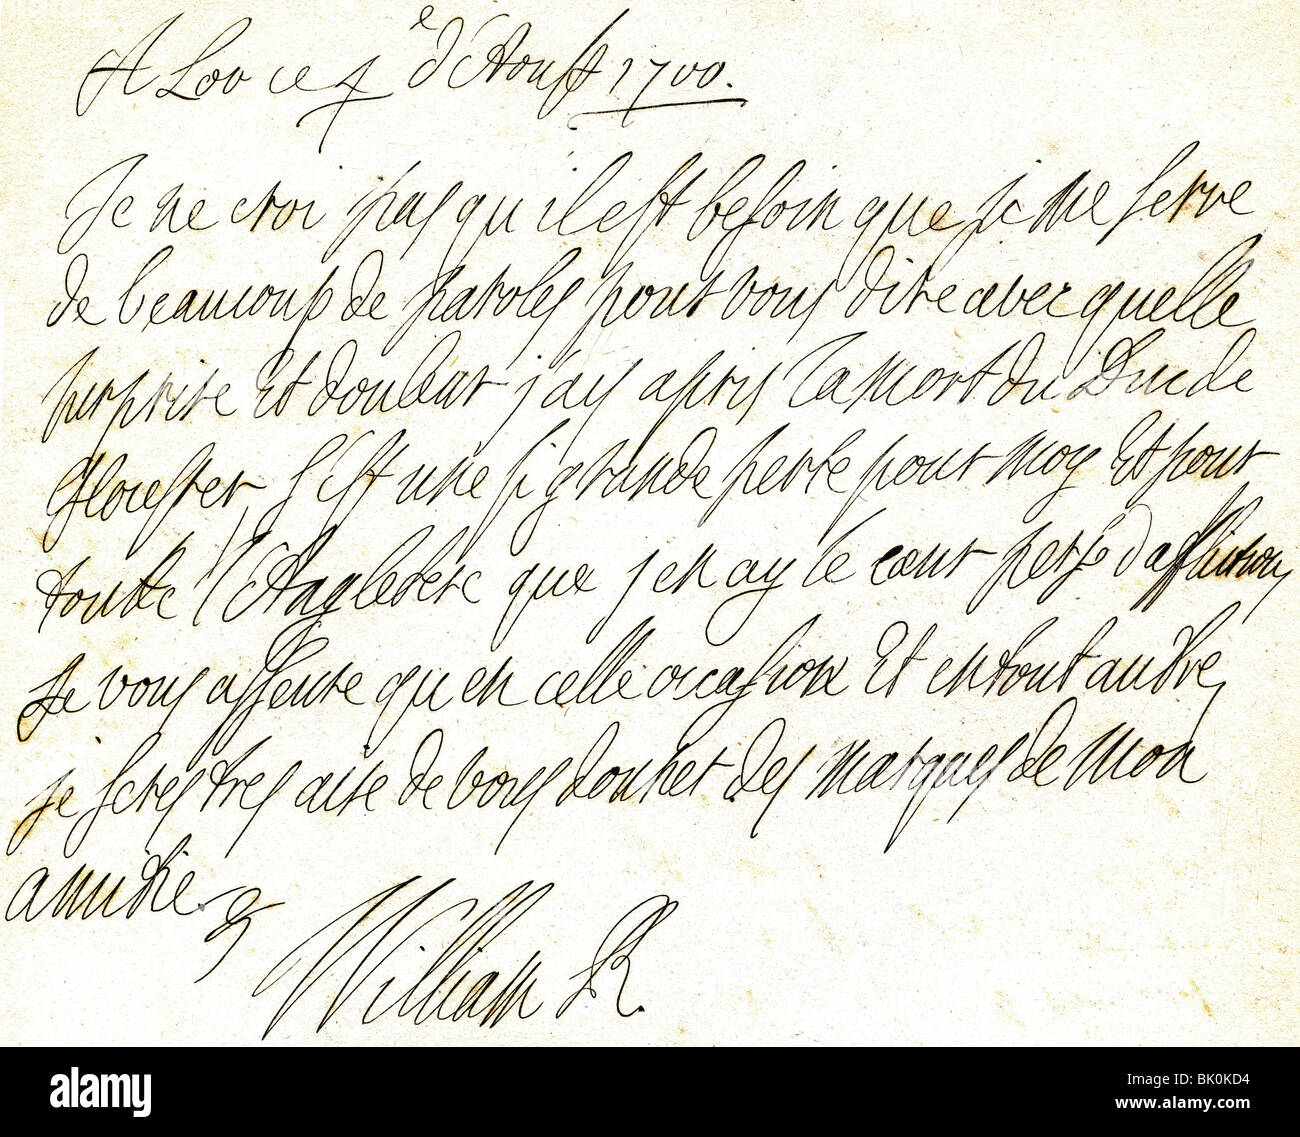 A Loo ce 4e d'Aoust 1700.
Je ne croi pas qu'il est besoin que je me serve
de beaucoup de paroles pour vous dire avec quelle
surprise et douleur j'ay apris la mort du Duc de
Glouster, C'est une si grande perte pour moy et pour
toutte l'Angleterre que j'en ay le coeur persé d'affliction,
Je vous asseure qu'en celle occasion et en tout autre,
je serés tres aise de vous donner des marques de mon
amitié.
William R.
alamy
alamy
Image ID: BK0KD4
www.alamy.com